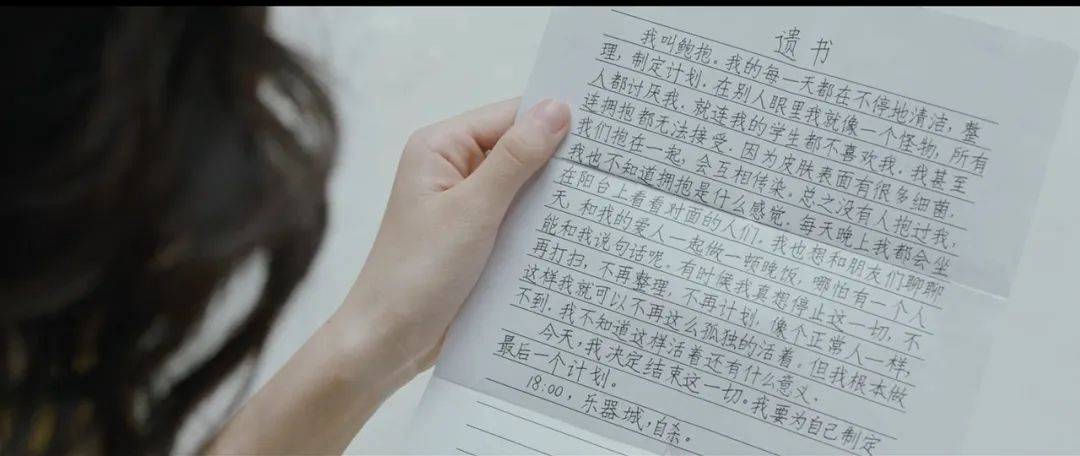 遗书
我叫鲍抱。我的每一天都在不停地清洁，整
理，制定计划．在别人眼里我就像一个怪物，所有
人都讨厌我．就连我的学生都不喜欢我．我甚至
连拥抱都无法接受．因为皮肤表面有很多细菌．
我们抱在一起，会互相传染。总之没有人抱过我，
我也不知道拥抱是什么感觉．每天晚上我都会坐
在阳台上看看对面的人们。我也想和朋友们聊聊
天，和我的爱人一起做一顿晚饭，哪怕有一个人
能和我说句话呢．有时候我真想停止这一切，不
再打扫，不再整理，不再计划，像个正常人一样，
这样我就可以不再这么孤独的活着．但我根本做
不到．我不知道这样活着还有什么意义．
今天，我决定结束这一切。我要为自己制定
最后一个计划。
18:00，乐器城，自杀。